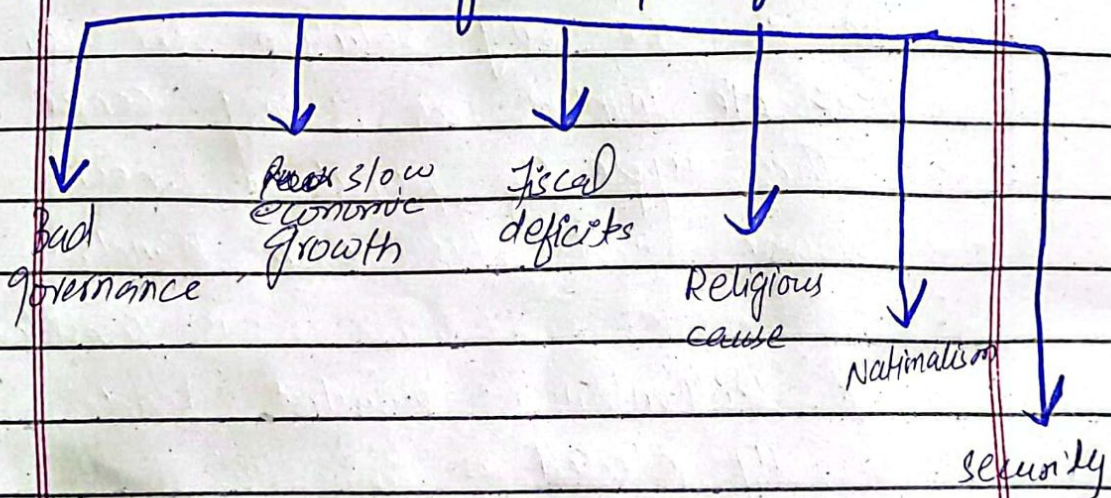 Bad
governance
slow
economic
growth
fiscal
deficits
Religious
cause
Nationalism
security